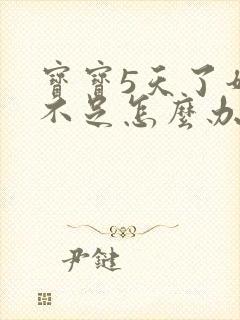 寶寶5天了
不足怎麼办
尹鍵